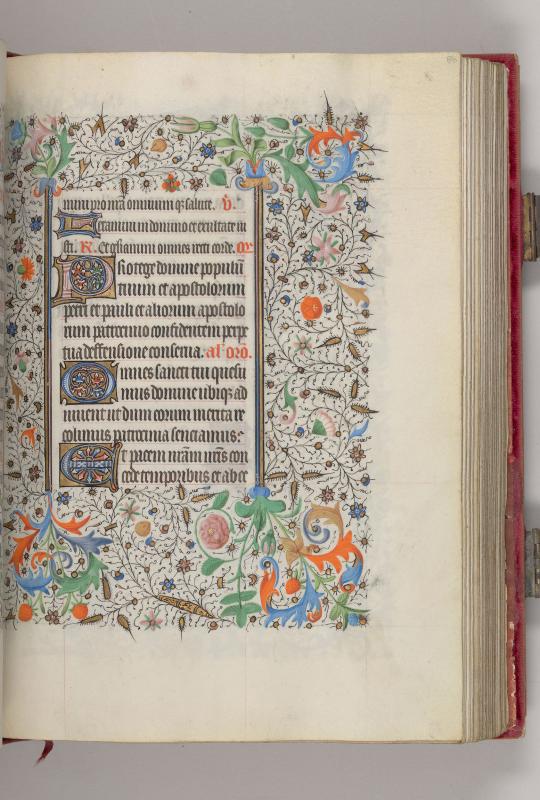 mini pro nr̃a omnium q̃ salute. ℣.
Letamini in domino et exultate iu
sti. ℟. et gloriamini omnes recti corde. Or̃
Protege domine populũ
tuum et apostolorum
petri et pauli et aliorum apostolo
rum patrocinio confidentem perpe
tua deffensione conserua. al' orõ.
Omnes sancti tui quesu
mus domine ubiq̃ ad
iuuent ut dum eorum merita re
colimus patrocinia senciamus:
Et pacem tuam nr̃is con
cede temporibus et ab ec